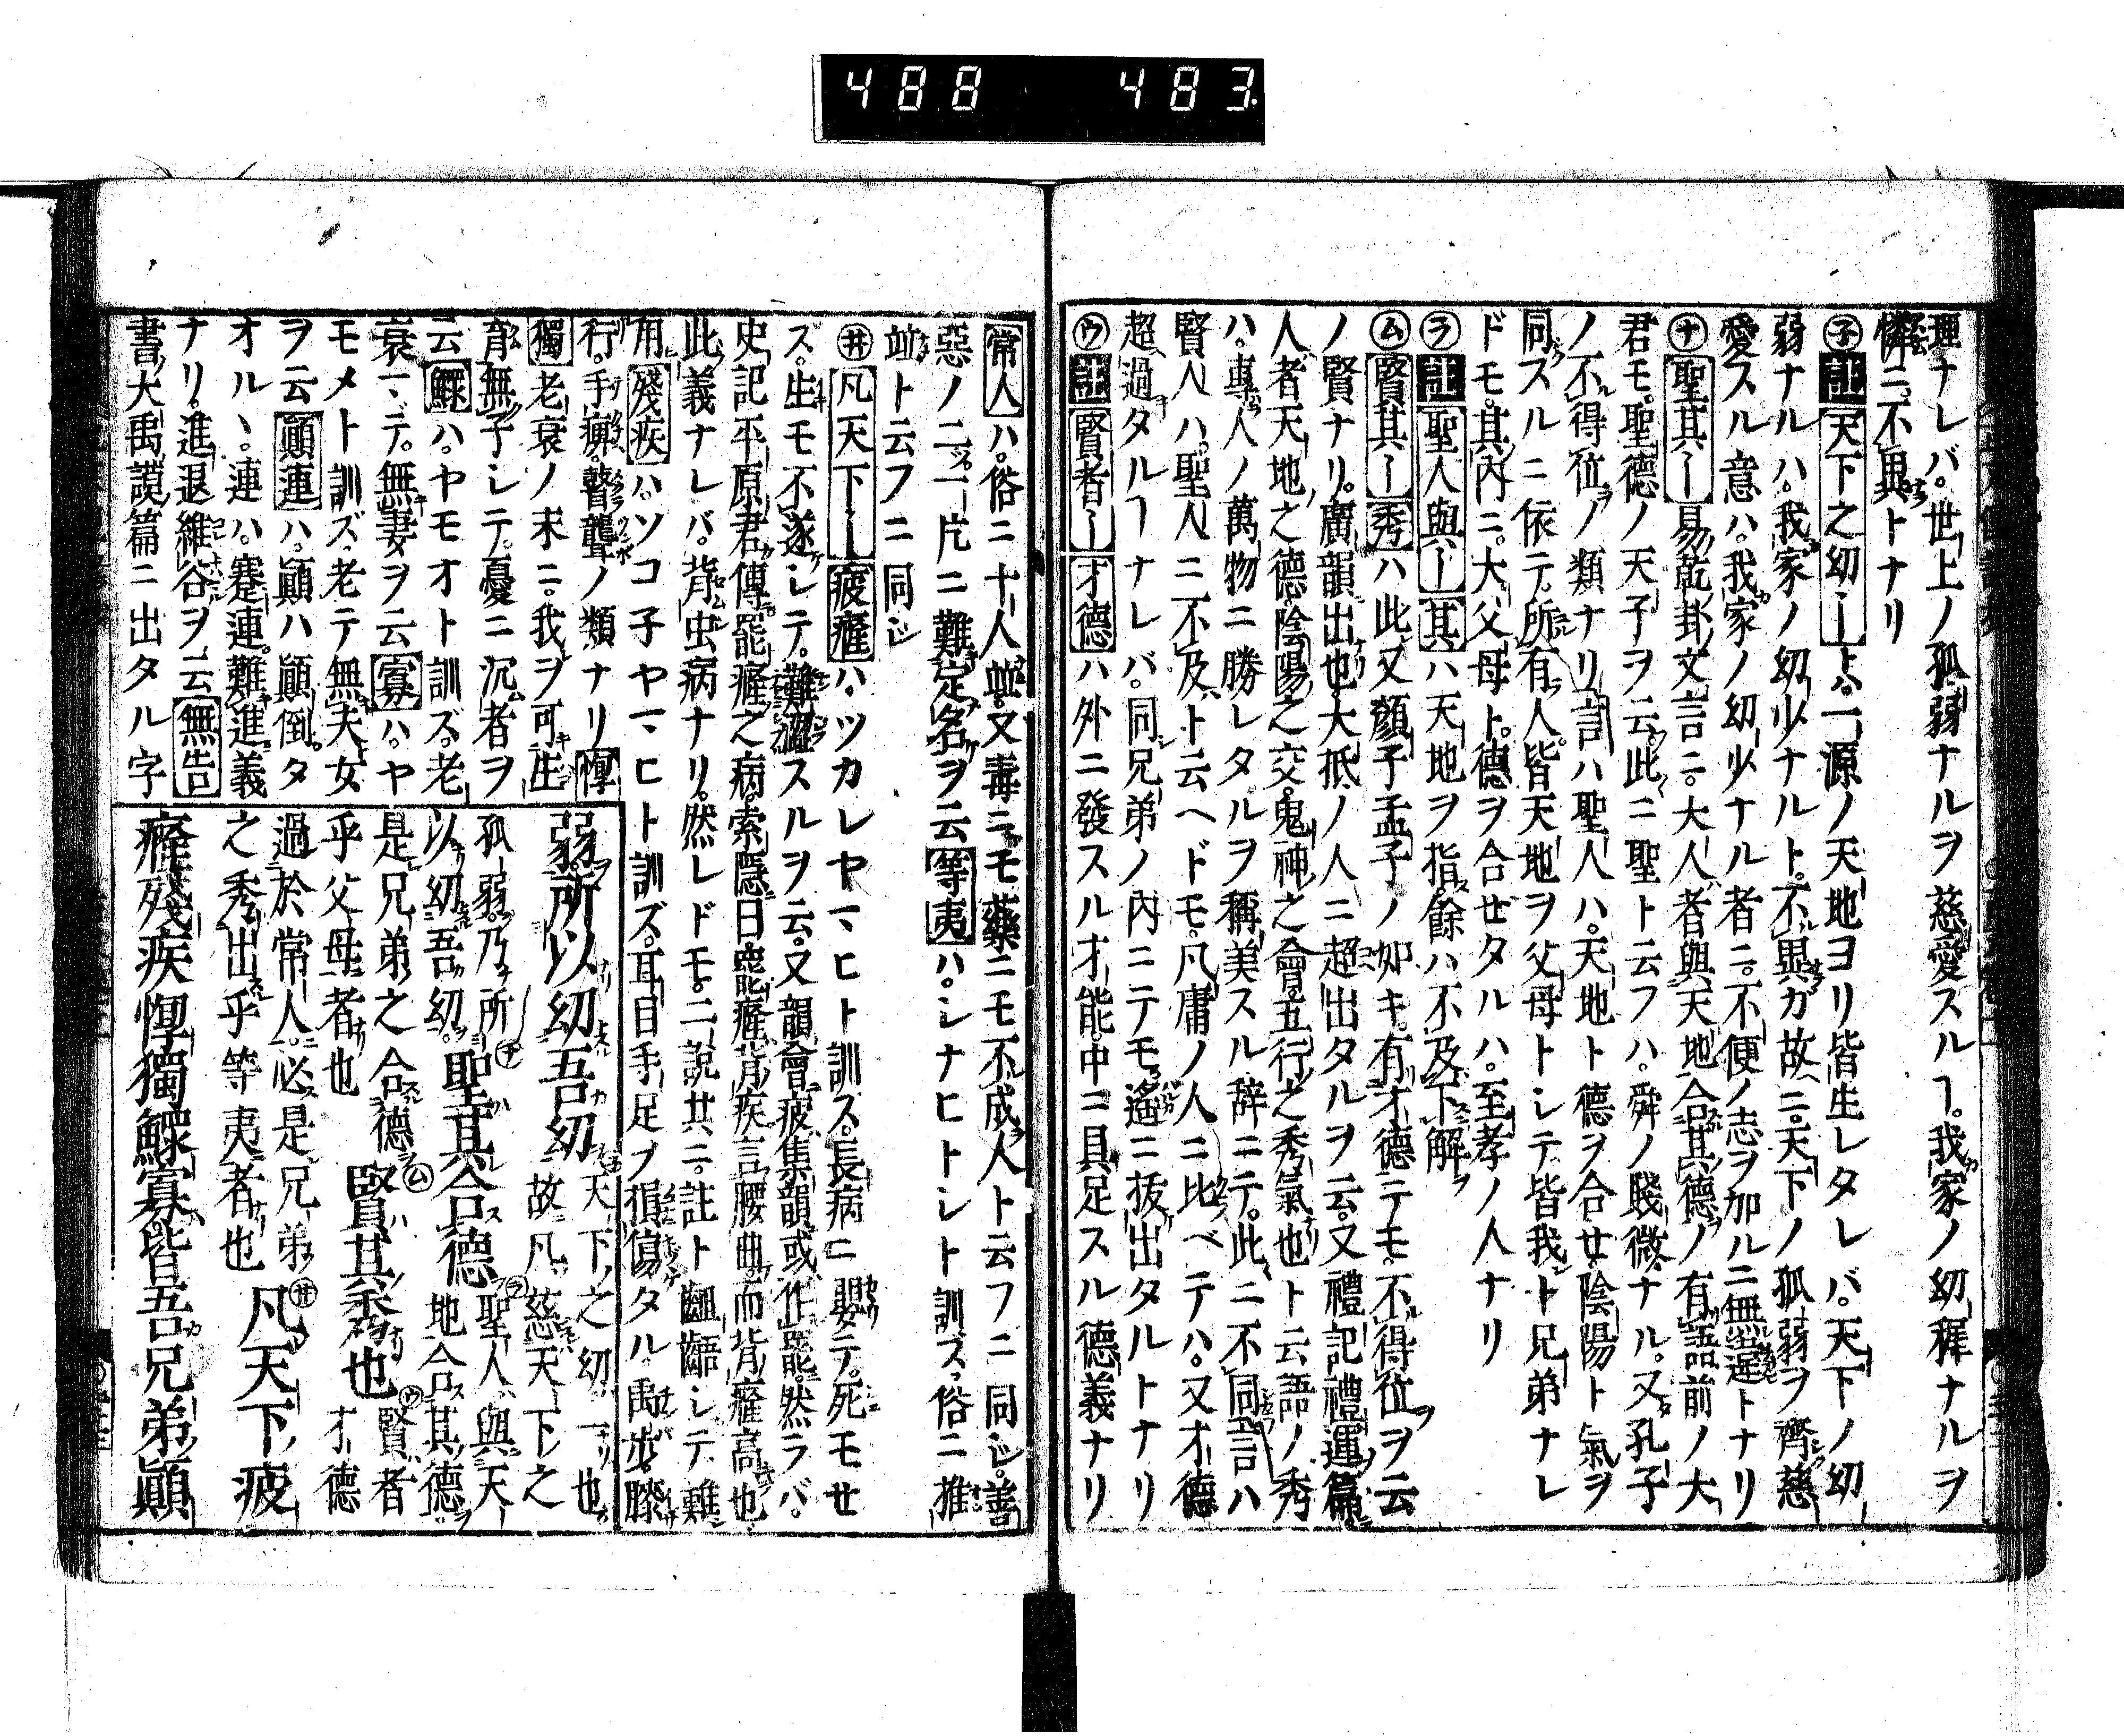 488 483
理ナレバ。世上ノ孤弱ナルヲ慈愛スルヿ。我家ノ幼穉ナルヲ
憐ニ。不異トナリ
㋧註天下之幼〡トハ。一源ノ天地ヨリ皆生レタレバ。天下ノ幼
弱ナルハ。我家ノ幼少ナルト。不異ガ故ニ。天下ノ孤弱ヲ齊慈
愛スル意ハ。我家ノ幼少ナル者ニ。不便ノ志ヲ加ルニ無差トナリ
㋤聖其〡易乾卦文言ニ。大人者與天地合其德ノ有語前ノ大
君モ。聖德ノ天子ヲ云。此ニ聖ト云フハ。舜ノ賤微ナル。又孔子
ノ不得位ノ類ナリ言ハ聖人ハ。天地ト德ヲ合セ。陰陽ト氣ヲ
同スルニ依テ。所有人。皆天地ヲ父母トシテ皆我ト兄弟ナレ
ドモ。其內ニ。大父母ト。德ヲ合セタルハ。至孝ノ人ナリ
㋶註聖人與〡其ハ天地ヲ指。餘ハ不及下解
㋰賢其〡秀ハ此又顏子孟子ノ如キ。有才德テモ。不得位ヲ云
ノ賢ナリ。廣韻出也。大抵ノ人ニ超出タルヲ云。又禮記禮運篇
人者天地之德陰陽之交。鬼神之會。五行之秀氣也ト云語ノ秀
ハ。專人ノ萬物ニ勝レタルヲ稱美スル辞ニテ。此ニ不同言ハ
賢人ハ。聖人ニ不及ト云ヘドモ。凡庸ノ人ニ比ベテハ。又才德
超過タルヿナレバ。同兄弟ノ內ニテモ。遙ニ拔出タルトナリ
㋒註賢者〡才德ハ外ニ發スル才能。中ニ具足スル德義ナリ
常人ハ。俗ニ十人並。又毒ニモ藥ニモ不成人ト云フニ同シ。善
惡ノ二ヲ。一片ニ難定名ヲ云等夷ハ。シナヒトシト訓ズ。俗ニ推
並ト云フニ同シ
㋼凡天下〡疲癃ハ。ツカレヤマヒト訓ズ。長病ニ嬰テ。死モセ
ズ。生モ不遂シテ。難澀スルヲ云。又韻會疲集韻或作罷。然ラバ。
史記平原君傳罷癃之病。索隱曰。罷癃背疾言腰曲。而背癃高也。
此義ナレバ。背虫病ナリ。然レドモ。二說共ニ。註ト齟齬シテ難
用殘疾ハソコ子ヤマヒト訓ズ。耳目手足ヲ損傷タル。禹步。膝
行。手癖。瞽聾ノ類ナリ惸
獨老衰ノ末ニ。我ヲ可生
育無子シテ。憂ニ沉者ヲ
云鰥ハ。ヤモオト訓ズ。老
衰マデ。無妻ヲ云寡ハ。ヤ
モメト訓ズ。老テ無夫女
ヲ云顚連ハ。顚ハ顚倒。タ
オルヽ。連ハ。蹇連。難進義
ナリ。進退維谷ヲ。云無告
書大禹謨篇ニ出タル字
弱所以幼吾幼天下之幼一也
故凡慈天下之
孤弱。乃所
以幼吾幼。聖其合德聖人與天
地合其德。
是兄弟之合德
乎父母者也賢其秀也賢者
才德
過於常人。必是兄弟
之秀出乎等夷者也凡天下疲
癃殘疾惸獨鰥寡皆吾兄弟顚